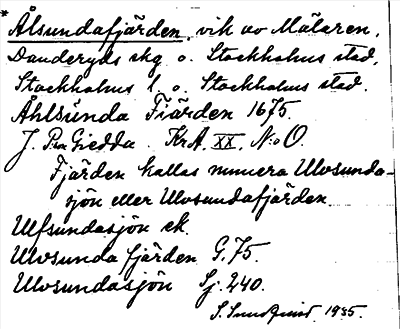 * Ålsundafjärden, vik av Mälaren,
Danderyds skg. o. Stockholms stad,
Stockholms l. o. Stockholms stad.
Åhlsunda Fiärden 1675.
J. Pr Giedda. KrA, XX, N:o O.
Fjärden kallas numera Ulvsunda-
sjön eller Ulvsundafjärden.
Ulfsundasjön ek.
Ulvsunda fjärden G. 75.
Ulvsundasjön Sj. 240.
S. Sundquist. 1935.